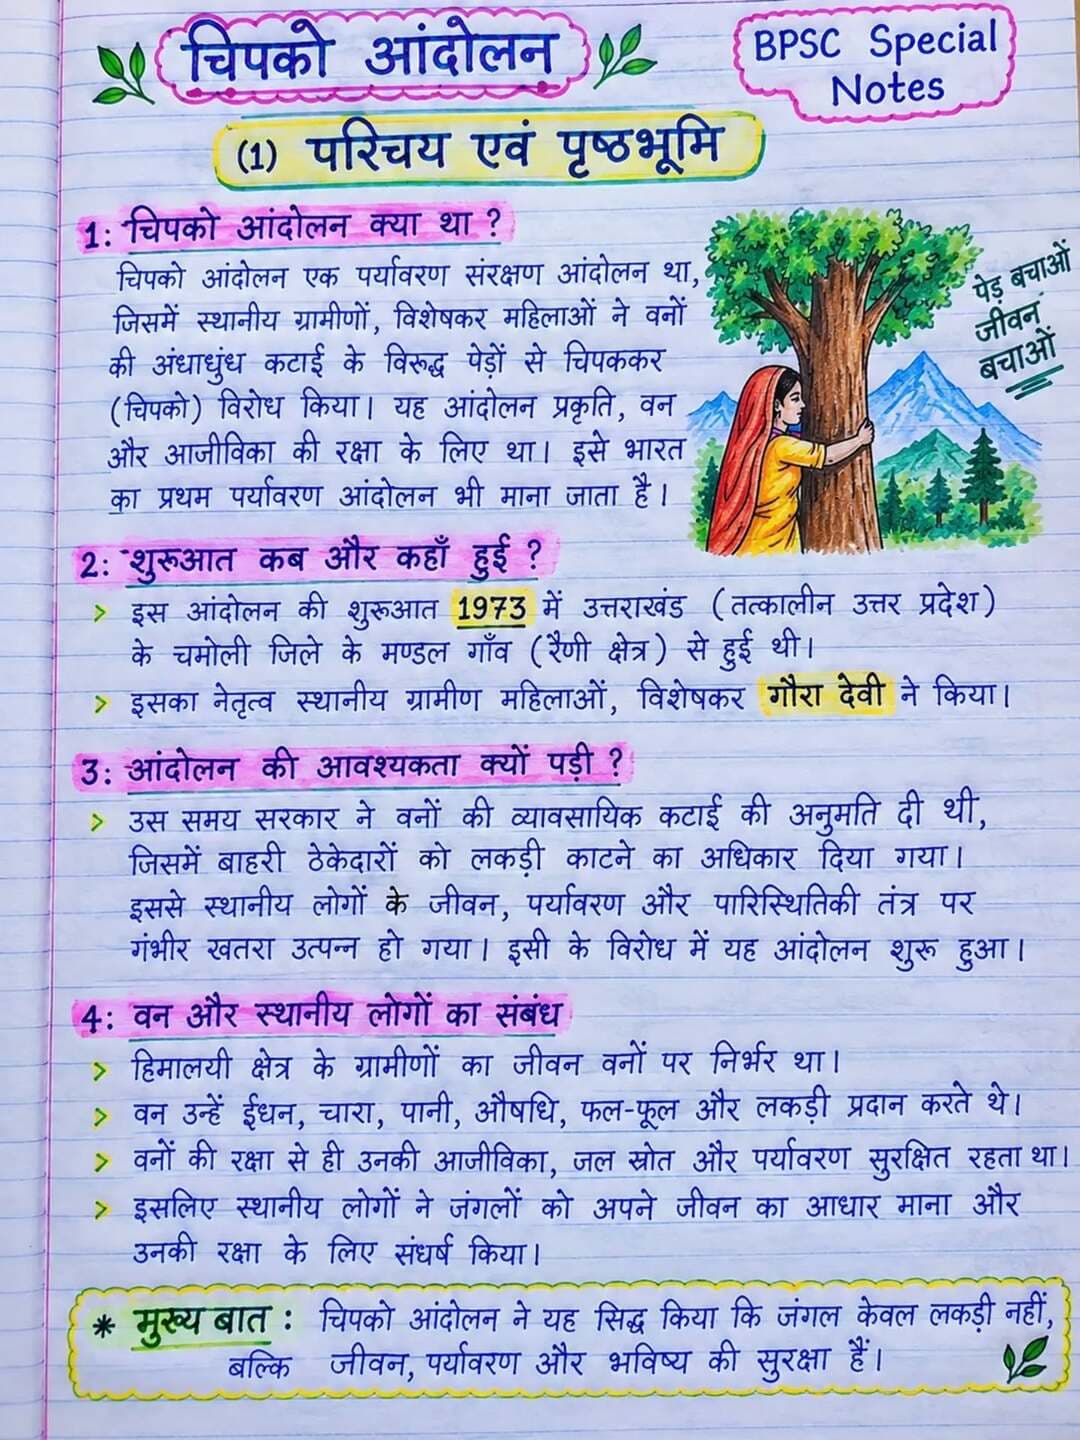 चिपको आंदोलन
BPSC Special
Notes
(1) परिचय एवं पृष्ठभूमि
1: चिपको आंदोलन क्या था ?
चिपको आंदोलन एक पर्यावरण संरक्षण आंदोलन था,
जिसमें स्थानीय ग्रामीणों, विशेषकर महिलाओं ने वनों
की अंधाधुंध कटाई के विरूद्ध पेड़ों से चिपककर
(चिपको) विरोध किया। यह आंदोलन प्रकृति, वन
और आजीविका की रक्षा के लिए था। इसे भारत
का प्रथम पर्यावरण आंदोलन भी माना जाता है।
पेड़ बचाओं
जीवन
बचाओं
2: शुरूआत कब और कहाँ हुई ?
> इस आंदोलन की शुरूआत 1973 में उत्तराखंड (तत्कालीन उत्तर प्रदेश)
के चमोली जिले के मण्डल गाँव (रैणी क्षेत्र) से हुई थी।
> इसका नेतृत्व स्थानीय ग्रामीण महिलाओं, विशेषकर गौरा देवी ने किया।
3: आंदोलन की आवश्यकता क्यों पड़ी ?
> उस समय सरकार ने वनों की व्यावसायिक कटाई की अनुमति दी थी,
जिसमें बाहरी ठेकेदारों को लकड़ी काटने का अधिकार दिया गया।
इससे स्थानीय लोगों के जीवन, पर्यावरण और पारिस्थितिकी तंत्र पर
गंभीर खतरा उत्पन्न हो गया। इसी के विरोध में यह आंदोलन शुरू हुआ।
4: वन और स्थानीय लोगों का संबंध
> हिमालयी क्षेत्र के ग्रामीणों का जीवन वनों पर निर्भर था।
> वन उन्हें ईंधन, चारा, पानी, औषधि, फल-फूल और लकड़ी प्रदान करते थे।
> वनों की रक्षा से ही उनकी आजीविका, जल स्रोत और पर्यावरण सुरक्षित रहता था।
> इसलिए स्थानीय लोगों ने जंगलों को अपने जीवन का आधार माना और
उनकी रक्षा के लिए संघर्ष किया।
* मुख्य बात : चिपको आंदोलन ने यह सिद्ध किया कि जंगल केवल लकड़ी नहीं,
बल्कि जीवन, पर्यावरण और भविष्य की सुरक्षा हैं।